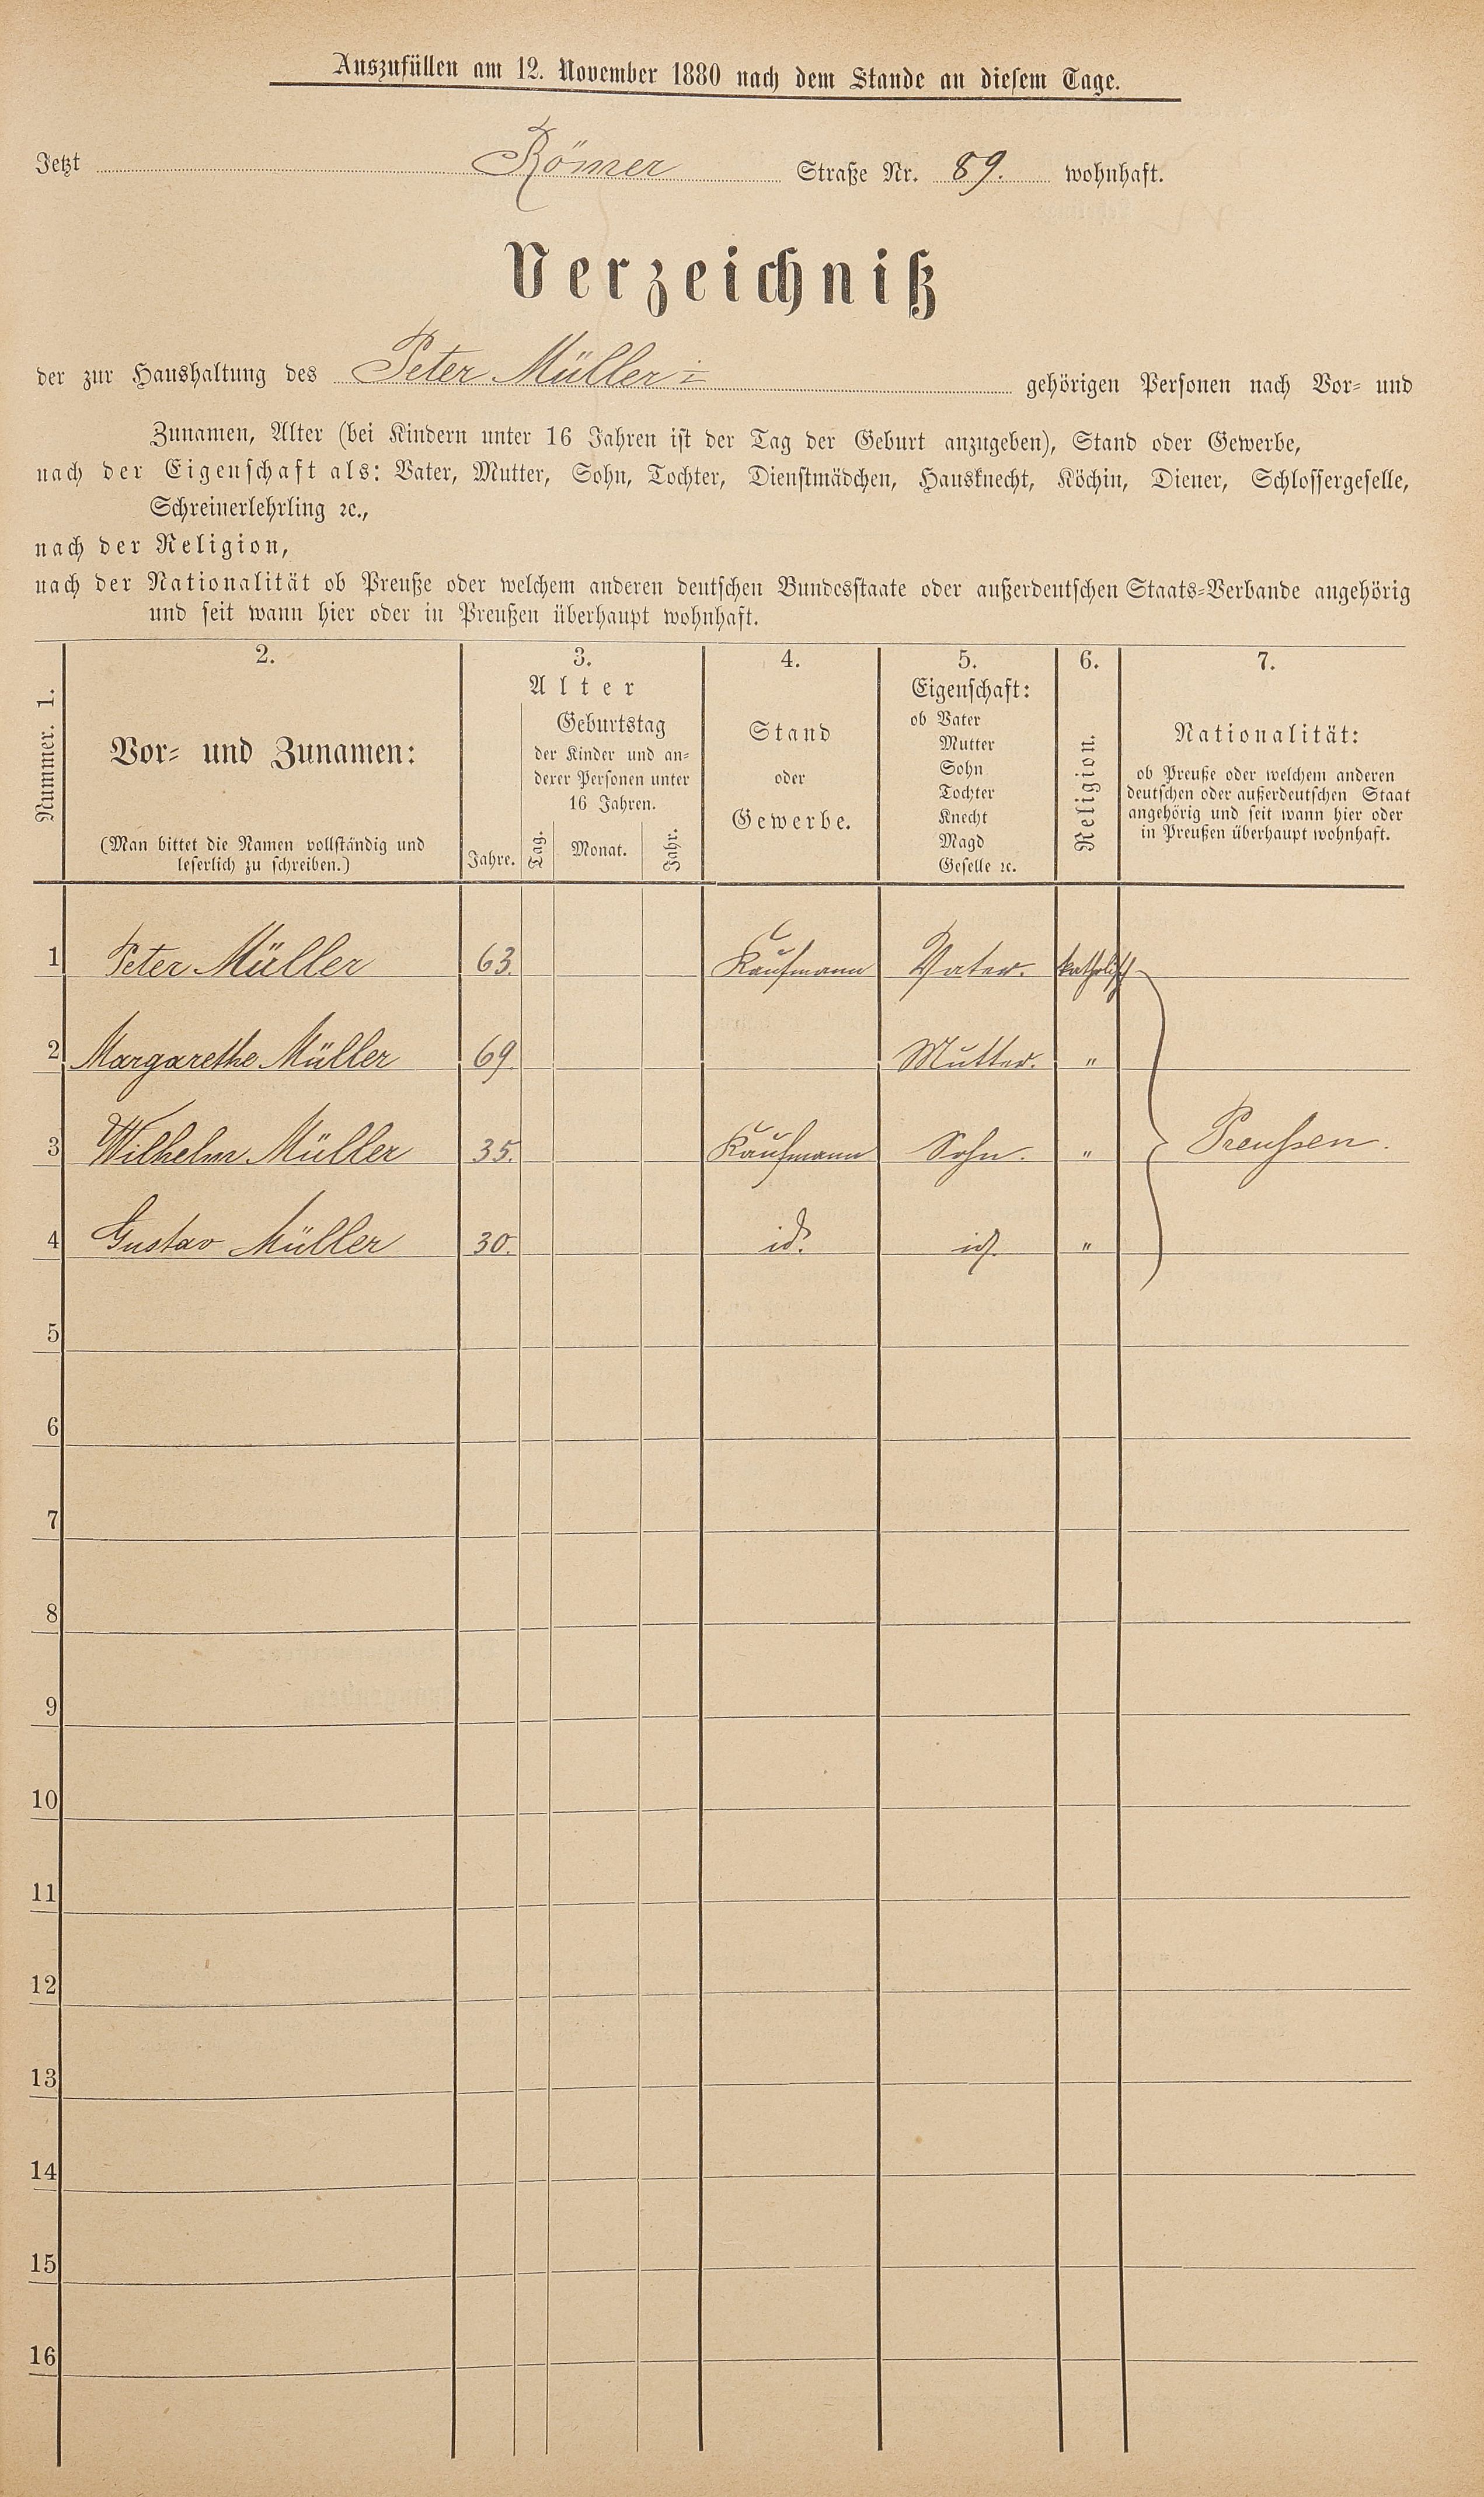 Auszufüllen am 12. November 1880 nach dem Stande an diesem Tage.
Jetzt Römer Straße Nr. 89. wohnhaft.
Verzeichniß
der zur Haushaltung des Peter Müller gehörigen Personen nach Vor- und
Zunamen, Alter (bei Kindern unter 16 Jahren ist der Tag der Geburt anzugeben), Stand oder Gewerbe,
nach der Eigenschaft als: Vater, Mutter, Sohn, Tochter, Dienstmädchen, Hausknecht, Köchin, Diener, Schlossergeselle,
Schreinerlehrling ꝛc.,
nach der Religion,
nach der Nationalität ob Preuße oder welchem anderen deutschen Bundesstaate oder außerdeutschen Staats-Verbande angehörig
und seit wann hier oder in Preußen überhaupt wohnhaft.
Nummer. 1.
2.
Vor- und Zunamen:
(Man bittet die Namen vollständig und
leserlich zu schreiben.)
3.
Alter
Jahre.
Geburtstag
der Kinder und an-
derer Personen unter
16 Jahren.
Tag. Monat. Jahr.
4.
Stand
oder
Gewerbe.
5.
Eigenschaft:
ob Vater
Mutter
Sohn
Tochter
Knecht
Magd
Geselle ꝛc.
6.
Religion.
7.
Nationalität:
ob Preuße oder welchem anderen
deutschen oder außerdeutschen Staat
angehörig und seit wann hier oder
in Preußen überhaupt wohnhaft.
1 Peter Müller 63. Kaufmann Vater. katholisch
2 Margarethe Müller 69. Mutter. "
3 Wilhelm Müller 35. Kaufmann Sohn. " Preußen.
4 Gustav Müller 30. id. id. "
5
6
7
8
9
10
11
12
13
14
15
16